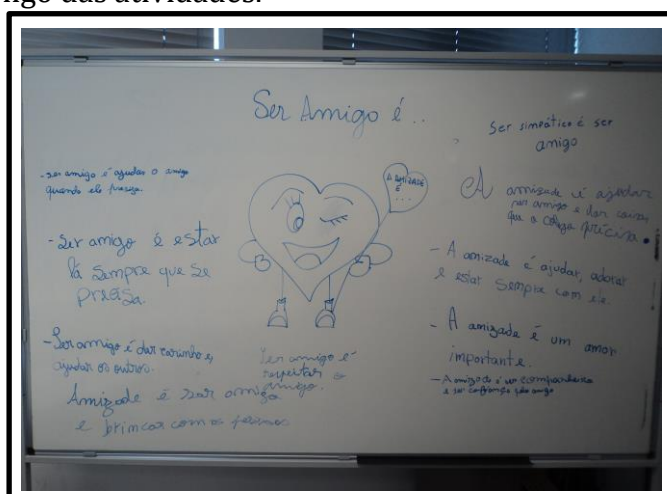 ngo das atividades.
Ser Amigo é..
Ser simpático é ser
amigo
- ser amigo é ajudar o amigo
quando ele precisa.
- Ser amigo é estar
lá sempre que se
precisa.
- Ser amigo é dar carinho e
ajudar os outros.
Amizade é ser amigo
e brincar com os
A AMIZADE
É
...
Ser amigo é
respeitar o
amigo.
A amizade é ajudar
um amigo e dar coisas
que o colega precisa.
- A amizade é ajudar, adorar
e estar sempre com ele.
- A amizade é um amor
importante.
- A amizade é ser companheiro
e ter confiança